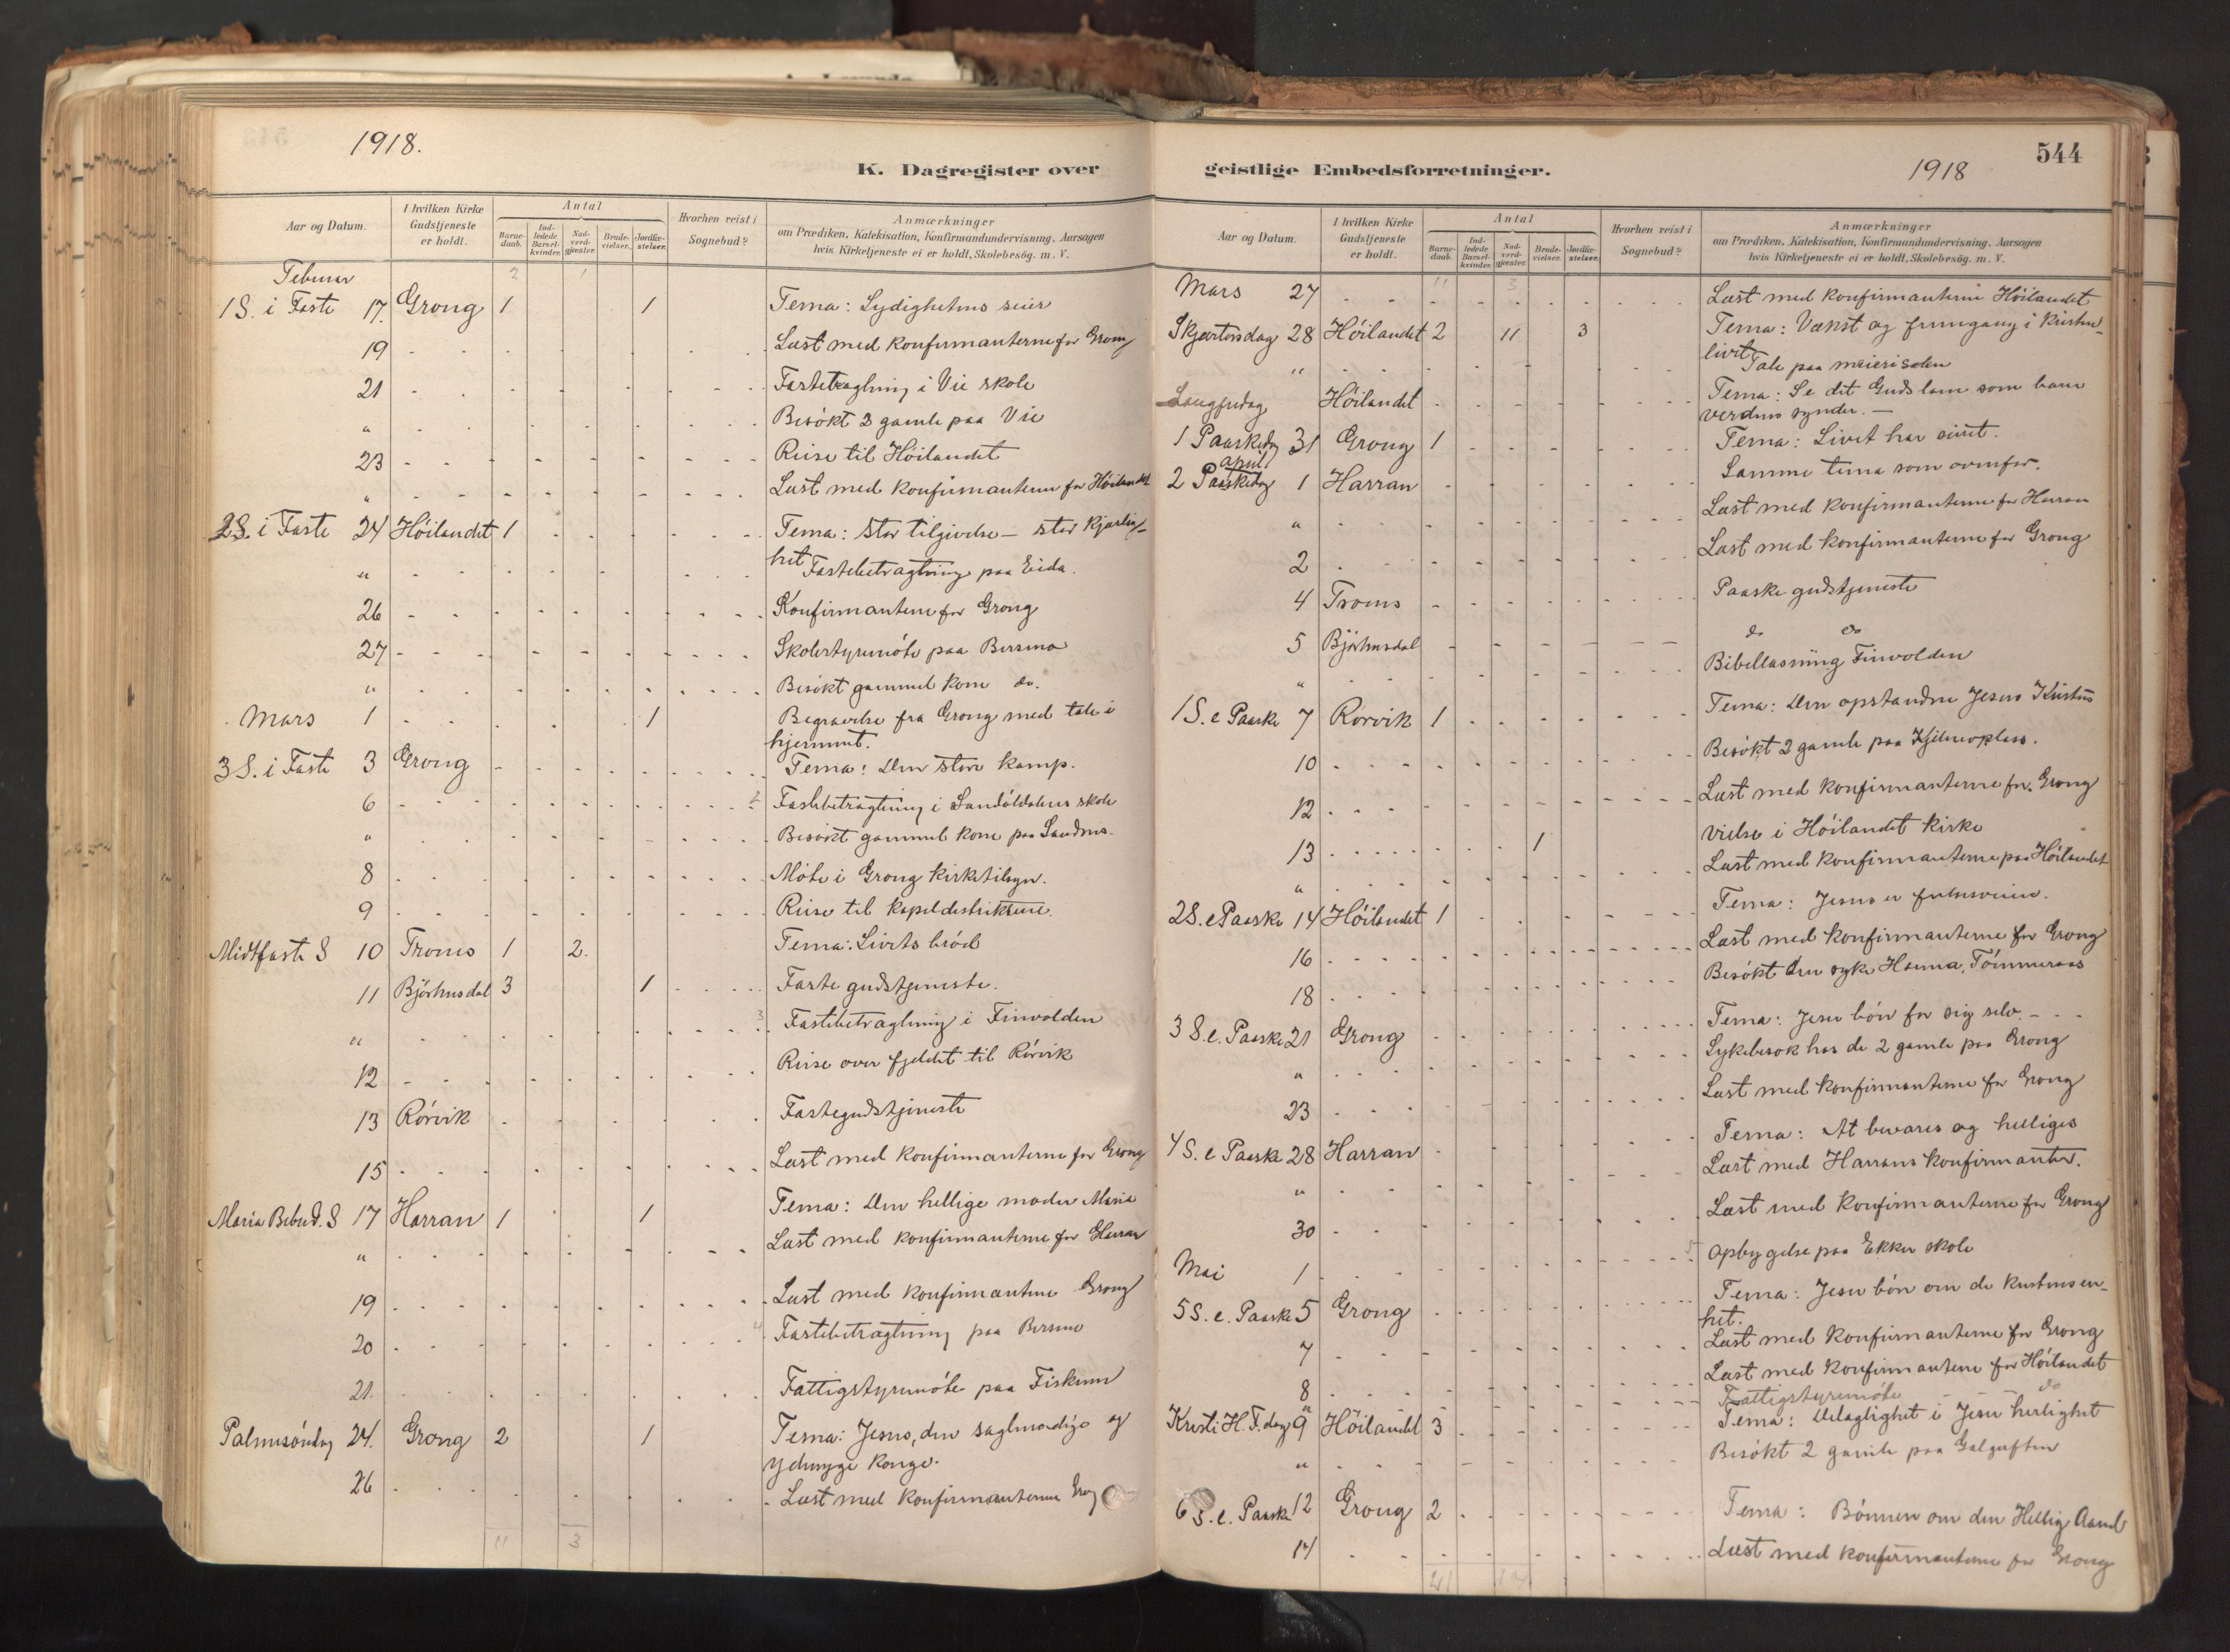 1918.
K. Dagregister over
Aar og Datum.
I hvilken Kirke Gudstjeneste er holdt.
Antal
Barne-daab.
Ind-ledede Barsel-kvinder.
Nad-verd-gjæster.
Brude-vielser.
Jordfæ-stelser.
Hvorhen reist i Sognebud?
Anmærkninger
om Prædiken, Katekisation, Konfirmandundervisning, Aarsagen
hvis Kirketjeneste ei er holdt, Skolebesøg. m. V.
Februar 2 1
1 S. i Faste 17. Grong 1 1 Tema: Lydighetens seier
19 Læst med konfirmanterne for Grong
21 Fastebetragtning i Vie skole
" Besøkt 3 gamle paa Vie
23 Reise til Höilandet
" Læst med konfirmanterne for Höilandet
2 S. i Faste 24 Höilandet 1 Tema: Stor tilgivelse – stor kjærlig-
het
" Fastebetragtning paa Eida.
26 Konfirmanterne for Grong
27 Skolestyremöte paa Bersmo
" Besøkt gammel kone do.
Mars 1 1 Begravelse fra Grong med tale i
hjemmet.
3 S. i Faste 3 Grong Tema: Den store kamp.
6 2 Fastebetragtning i Sandöldalens skole
" Besøkt gammel kone paa Sandnes.
8 Möte i Grong kirketilsyn.
9 Reise til kapeldistrikterne.
Midtfaste S 10 Trones 1 2. Tema: Livets bröd
11 Björhusdal 3 1 Faste gudstjeneste.
" 3 Fastebetragtning i Finvolden
12 Reise over fjeldet til Rörvik
13 Rörvik Fastegudstjeneste
15 Læst med konfirmanterne for Grong
Maria Bebud. S 17 Harran 1 1 Tema: Den hellige moder Maria
" Læst med konfirmanterne for Harran
19 Læst med konfirmanterne Grong
20 4 Fastebetragtning paa Bersmo
21. Fattigstyremöte paa Fiskum
Palmesöndag 24. Grong 2 1 Tema: Jesus, den sagtmodige og
ydmyge konge.
26 Læst med konfirmanterne Grong
11 3
544
1918
geistlige Embedsforretninger.
Aar og Datum.
I hvilken Kirke Gudstjeneste er holdt.
Antal
Barne-daab.
Ind-ledede Barsel-kvinder.
Nad-verd-gjæster.
Brude-vielser.
Jordfæ-stelser.
Hvorhen reist i Sognebud?
Anmærkninger
om Prædiken, Katekisation, Konfirmandundervisning, Aarsagen
hvis Kirketjeneste ei er holdt, Skolebesøg. m. V.
11 3
Mars 27 Læst med konfirmanterne Höilandet
Skjærtorsdag 28 Höilandet 2 11 3 Tema: Vækst og fremgang i kristen-
livet
" Tale paa meierisalen
Langfredag Höilandet Tema: Se det Guds lam som bar
verdens synder. –
1 Paaskedag 31 Grong 1 Tema: Livet har seiret.
april
2 Paaskedag 1 Harran Samme tema som ovenfor.
" Læst med konfirmanterne for Harran
2 Læst med konfirmanterne for Grong
4 Trones Paaske gudstjeneste
5 Björhusdal do do
" Bibellæsning Finvolden
1 S. e Paaske 7 Rörvik 1 Tema: Den opstandne Jesus Kristus
10 Besøkt 2 gamle paa
12 Læst med konfirmanterne for Grong
13 1 Vielse i Höilandet kirke
" Læst med konfirmanterne paa Höilandet
2 S. e Paaske 14 Höilandet 1 Tema: Jesus er frelsesveien.
16 Læst med konfirmanterne for Grong
18 Besøkt den syke Tömmeraas
3 S. e. Paaske 21 Grong Tema: Jesu bön for sig selv.
" Sykebesøk hos de 2 gamle paa Grong
23 Læst med konfirmanterne for Grong
4 S. e Paaske 28 Harran Tema: At bevares og helliges
" Læst med Harrans konfirmanter.
30 Læst med konfirmanterne for Grong
Mai 1 5 Opbyggelse paa Ekker skole
5 S. e. Paaske 5 Grong Tema: Jesu bön om de kristnes en-
het.
7 Læst med konfirmanterne for Grong
8 Læst med konfirmanterne for Höilandet
" Fattigstyremöte do
Kristi H. F. dag 9 Höilandet 3 Tema: Delagtighet i Jesu herlighet
" Besøkt 2 gamle paa
6 S. e. Paaske 12 Grong 2 Tema: Bönnen om den Hellig Aand
14 Læst med konfirmanterne for Grong
21 14